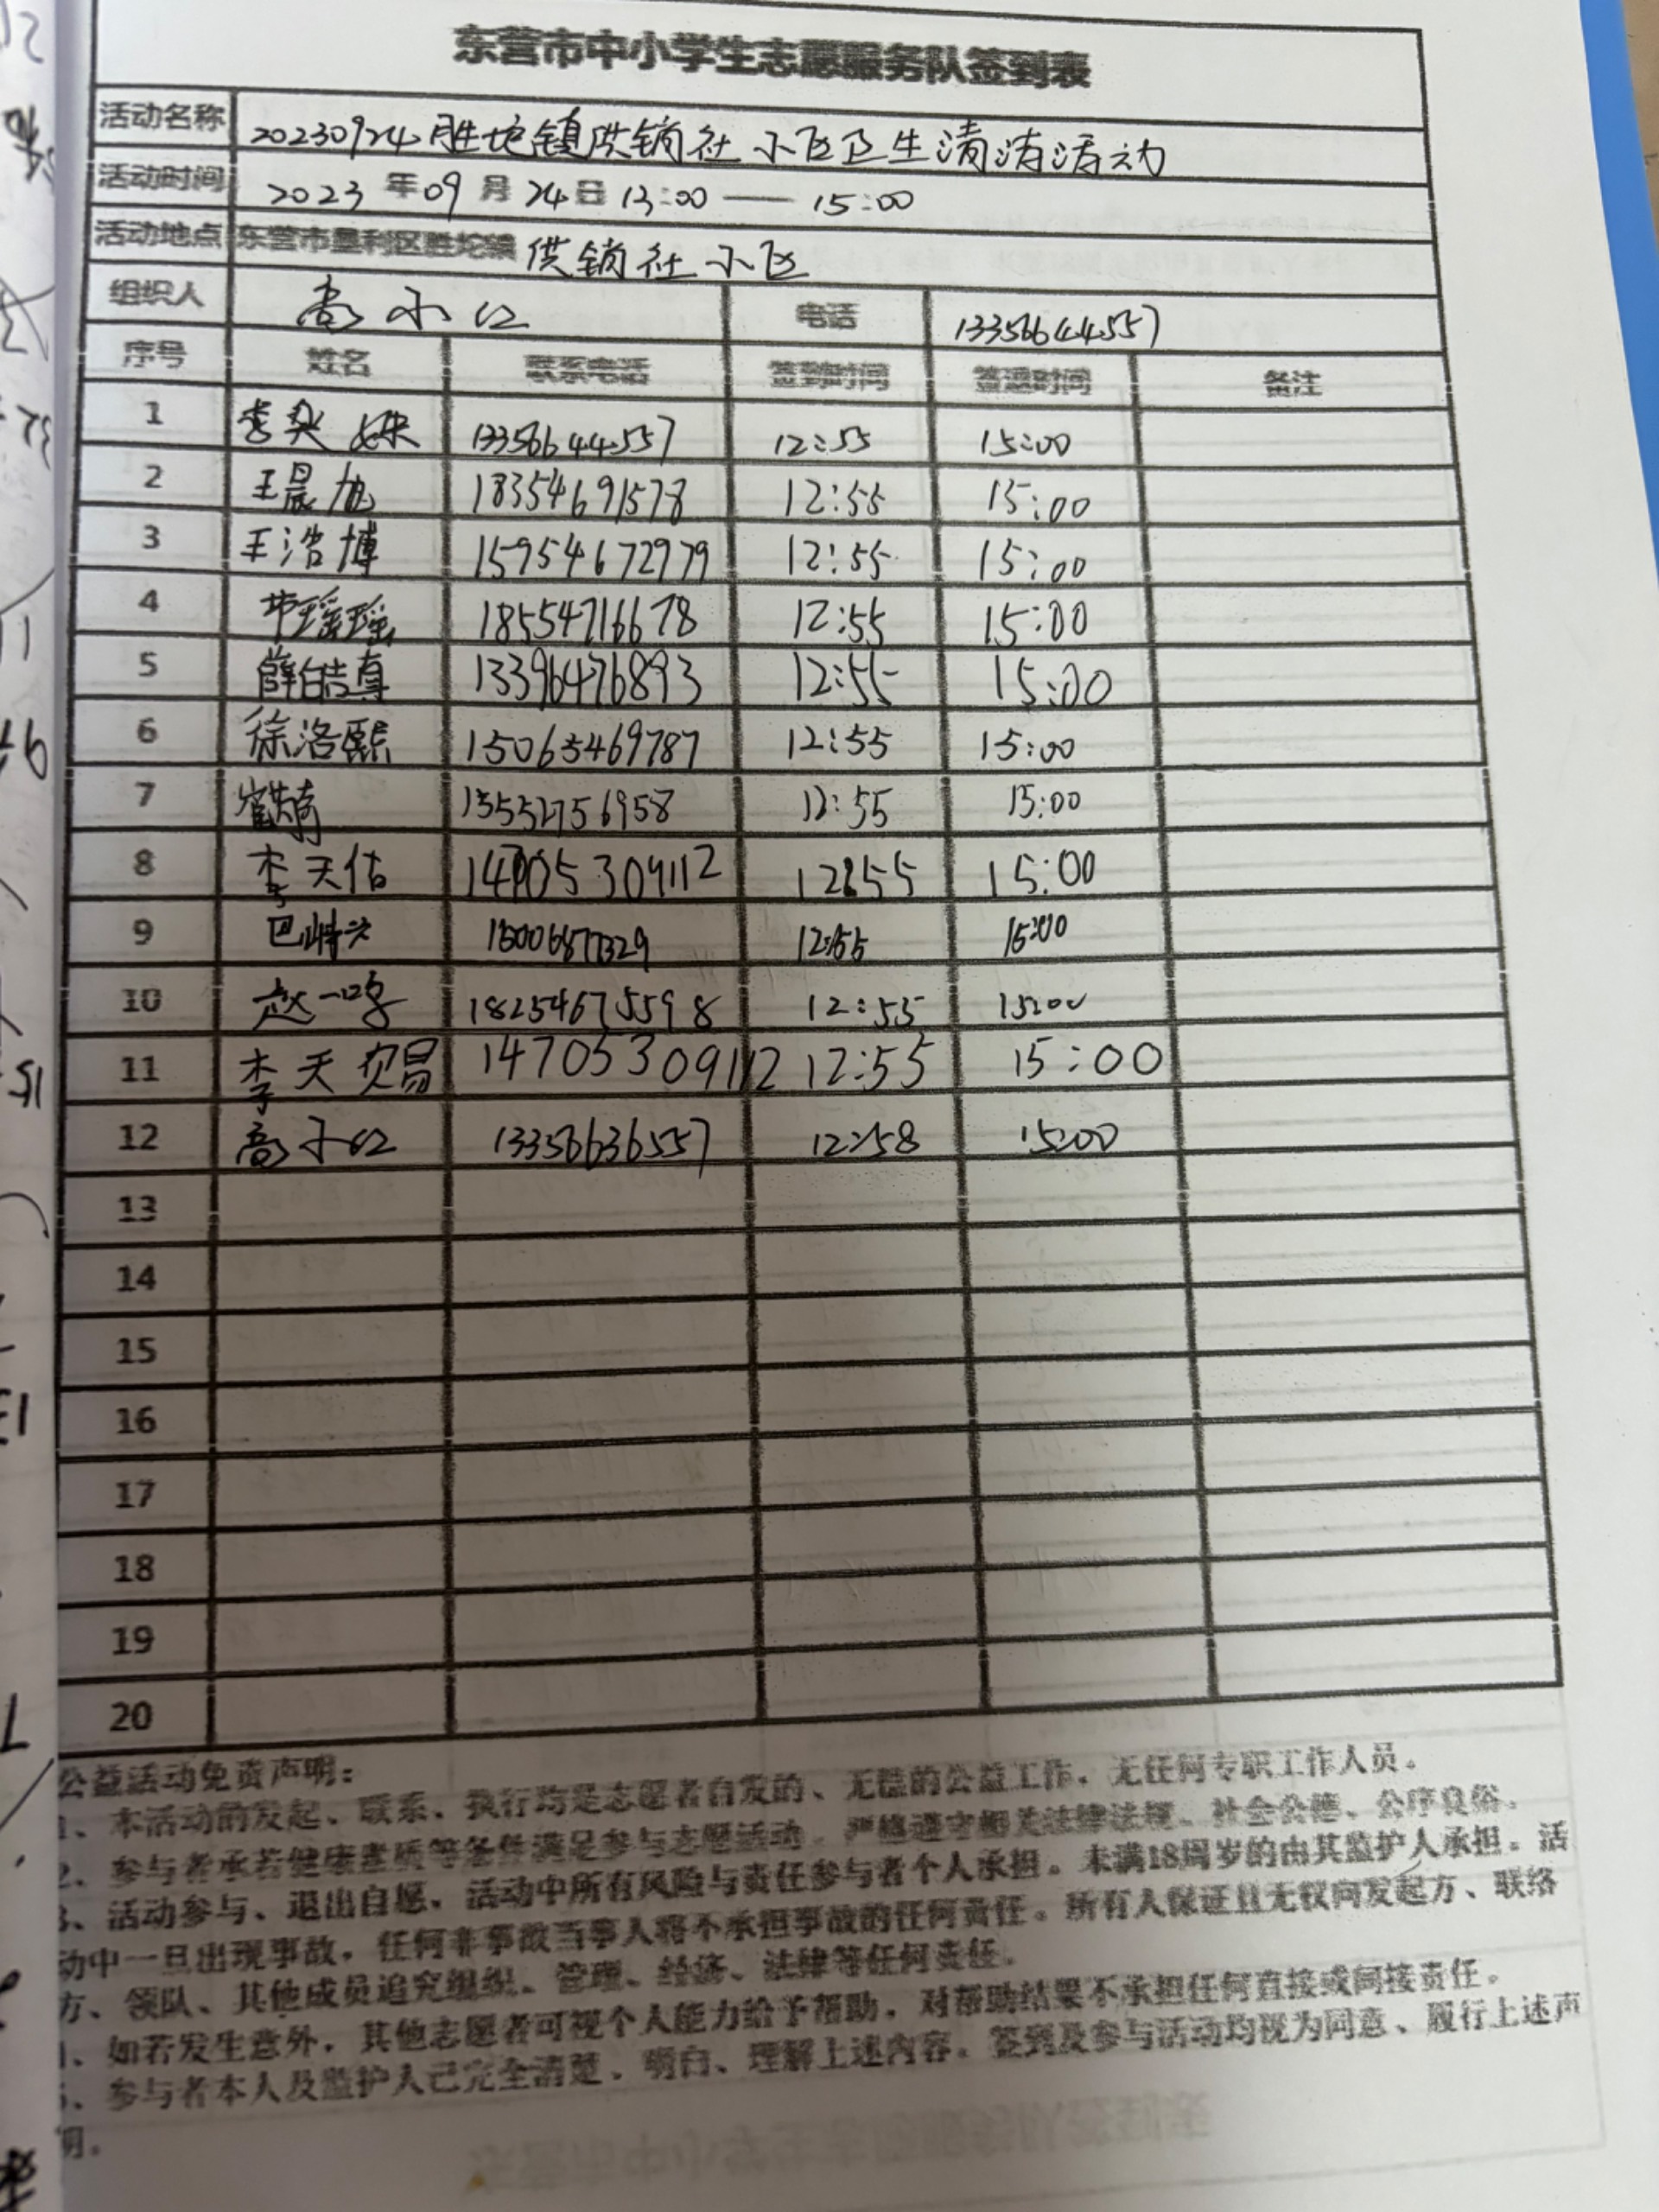 东营市中小学生志愿服务队签到表
活动名称 20230924胜坨镇供销社小区卫生清洁活动
活动时间 2023年09月24日13:00——15:00
活动地点 东营市垦利区胜坨镇 供销社小区
组织人 高小红 电话 13356644557
序号 姓名 联系电话 签到时间 签退时间 备注
1 李奕姝 13356644557 12:55 15:00
2 王晨旭 18354691578 12:55 15:00
3 王浩博 15954672979 12:55 15:00
4 瑶瑶 18554716678 12:55 15:00
5 薛皓真 13396476893 12:55 15:00
6 徐洛熙 15065469787 12:55 15:00
7 12:55 15:00
8 李天佑 14705309112 12:55 15:00
9 12:55 15:00
10 赵一鸣 18254675598 12:55 15:00
11 李天赐 14705309112 12:55 15:00
12 高小红 13356636557 12:58 15:00
13
14
15
16
17
18
19
20
公益活动免责声明：
、本活动的发起、联系、执行均是志愿者自发的、无偿的公益工作，无任何专职工作人员。
2、参与者承若健康素质等条件满足参与志愿活动，严格遵守相关法律法规、社会公德、公序良俗。
3、活动参与、退出自愿，活动中所有风险与责任参与者个人承担。未满18周岁的由其监护人承担。活
动中一旦出现事故，任何非事故当事人将不承担事故的任何责任。所有人保证且无权向发起方、联络
方、领队、其他成员追究组织、管理、经济、法律等任何责任。
、如若发生意外，其他志愿者可视个人能力给予帮助，对帮助结果不承担任何直接或间接责任。
、参与者本人及监护人已完全清楚、明白、理解上述内容。签到及参与活动均视为同意、履行上述声
明。